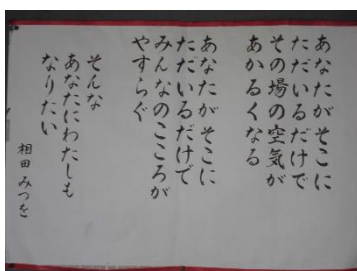 あなたがそこに
ただいるだけで
その場の空気が
あかるくなる
あなたがそこに
ただいるだけで
みんなのこころが
やすらぐ
そんな
あなたにわたしも
なりたい
相田みつを